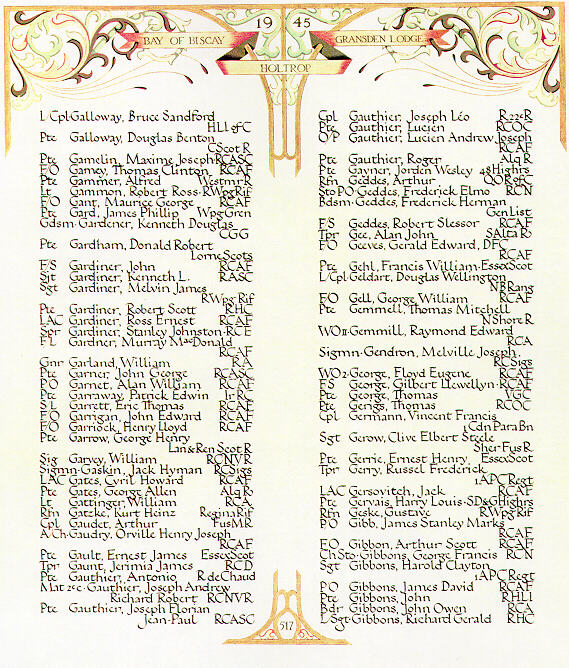 19 45
BAY OF BISCAY
GRANSDEN LODGE
HOLTROP
L/Cpl Galloway, Bruce Sandford
HLI of C
Pte Galloway, Douglas Benton
CScot R
Pte Gamelin, Maxime Joseph RCASC
F/O Gamey, Thomas Clinton RCAF
Pte Gammer, Alfred Westmr R
Lt Gammon, Robert Ross RWpg Rif
F/O Gant, Maurice George RCAF
Pte Gard, James Phillip Wpg Gren
Gdsm Gardener, Kenneth Douglas
CGG
Pte Gardham, Donald Robert
Lorne Scots
F/S Gardiner, John RCAF
Sjt Gardiner, Kenneth L. RASC
Sgt Gardiner, Melvin James
RWpg Rif
Pte Gardiner, Robert Scott RHC
LAC Gardiner, Ross Ernest RCAF
Spr Gardiner, Stanley Johnston RCE
F/L Gardner, Murray MacDonald
RCAF
Gnr Garland, William RA
Pte Garner, John George RCASC
P/O Garnet, Alan William RCAF
Pte Garraway, Patrick Edwin Ir RC
S/L Garrett, Eric Thomas RCAF
F/O Garrigan, John Edward RCAF
F/O Garriock, Henry Lloyd RCAF
Pte Garrow, George Henry
Lan & Ren Scot R
Sig Garvey, William RCNVR
Sigmn Gaskin, Jack Hyman RCSigs
LAC Gates, Cyril Howard RCAF
Pte Gates, George Allen Alq R
Lt Gattinger, William RCA
Rfn Gatzke, Kurt Heinz Regina Rif
Cpl Gaudet, Arthur Fus MR
A/Ch Gaudry, Orville Henry Joseph
RCAF
Pte Gault, Ernest James Essex Scot
Tpr Gaunt, Jerimia James RCD
Pte Gauthier, Antonio R de Chaud
Mat 2e c Gauthier, Joseph Andrew
Richard Robert RCNVR
Pte Gauthier, Joseph Florian
Jean-Paul RCASC
Cpl Gauthier, Joseph Léo R22eR
Pte Gauthier, Lucien RCOC
O/P Gauthier, Lucien Andrew Joseph
RCAF
Pte Gauthier, Roger Alq R
Pte Gayner, Jorden Wesley 48 Highrs
Rfn Geddes, Arthur QOR of C
Sto PO Geddes, Frederick Elmo RCN
Bdsm Geddes, Frederick Herman
Gen List
F/S Geddes, Robert Slessor RCAF
Tpr Gee, Alan John SAlta R
F/O Geeves, Gerald Edward, DFC
RCAF
Pte Gehl, Francis William Essex Scot
L/Cpl Geldart, Douglas Wellington
NB Rang
F/O Gell, George William RCAF
Pte Gemmell, Thomas Mitchell
N Shore R
WO II Gemmill, Raymond Edward
RCA
Sigmn Gendron, Melville Joseph
RC Sigs
WO2 George, Floyd Eugene RCAF
F/S George, Gilbert Llewellyn RCAF
Pte George, Thomas VGC
Pte Gerigs, Thomas RCOC
Cpl Germann, Vincent Francis
1 Cdn Para Bn
Sgt Gerow, Clive Elbert Steele
Sher Fus R
Pte Gerrie, Ernest Henry Essex Scot
Tpr Gerry, Russel Frederick
1 APC Regt
LAC Gersovitch, Jack RCAF
Pte Gervais, Harry Louis SD&G Highrs
Rfn Geske, Gustave RWpg Rif
P/O Gibb, James Stanley Marks
RCAF
F/O Gibbon, Arthur Scott RCAF
Ch Sto Gibbons, George Francis RCN
Sgt Gibbons, Harold Clayton
1 APC Regt
P/O Gibbons, James David RCAF
Pte Gibbons, John RHLI
Bdr Gibbons, John Owen RCA
L/Sgt Gibbons, Richard Gerald RHC
517